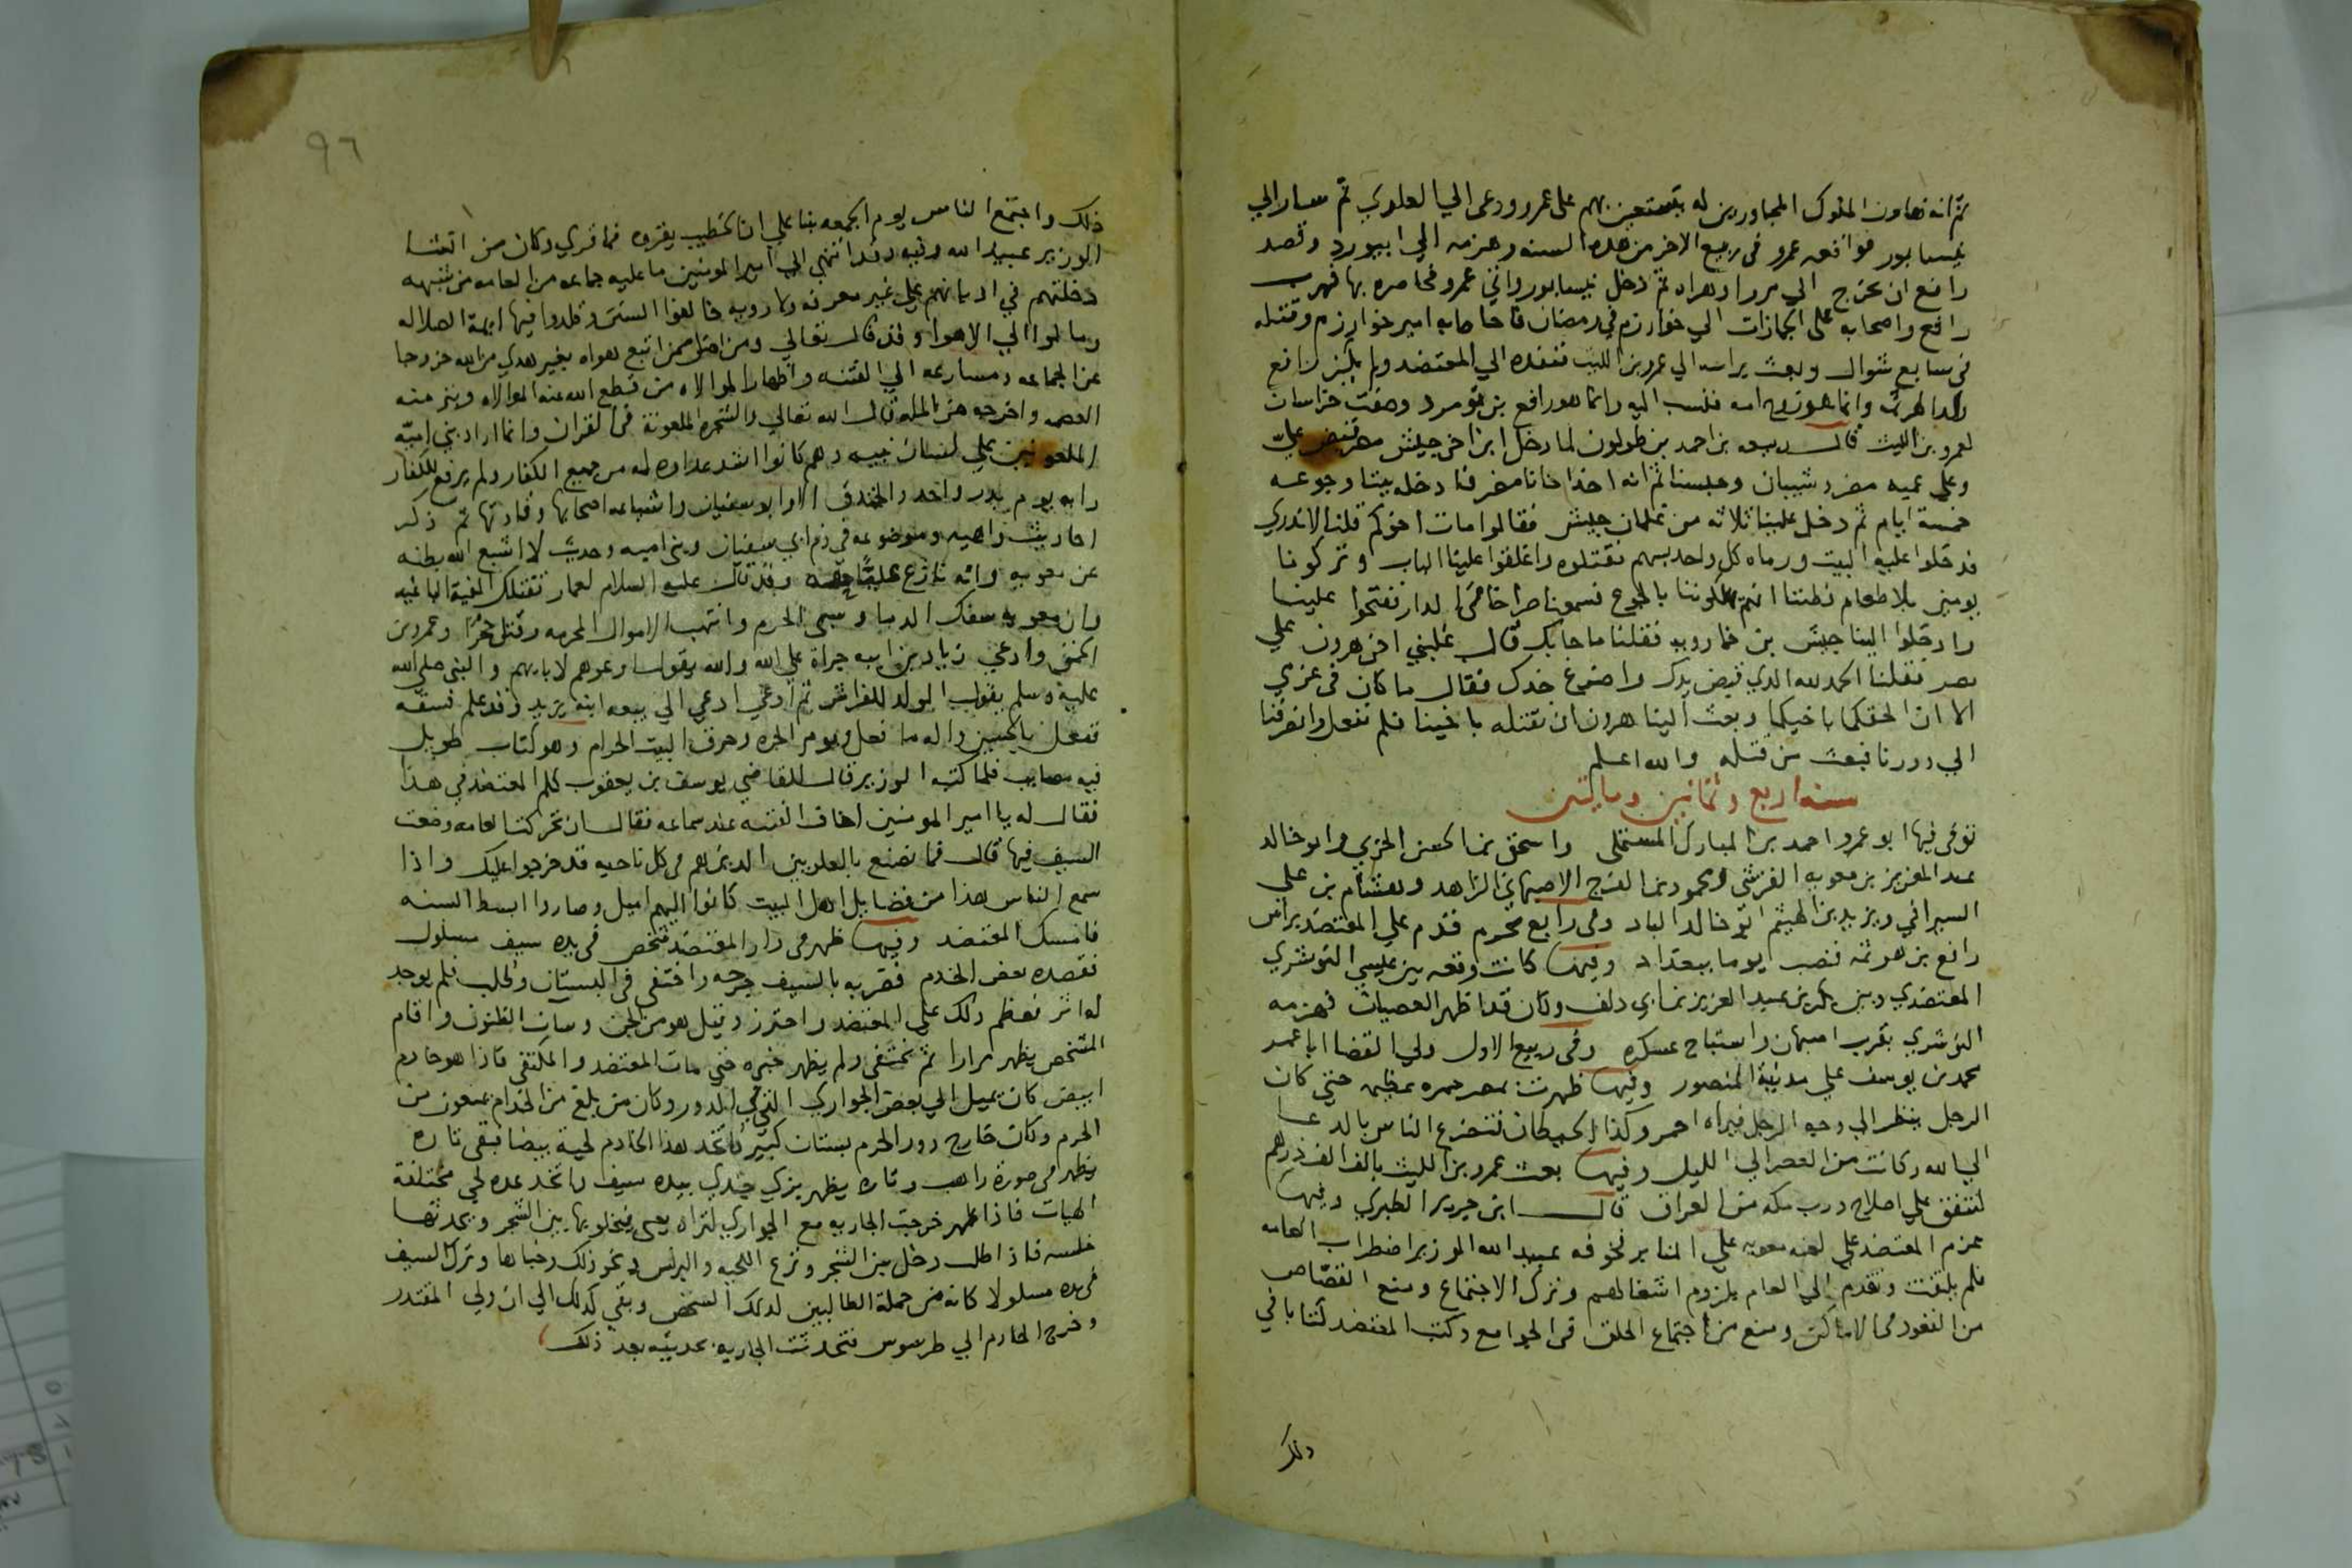 ثم انه تهاون الملوك المجاورين له يستعين بهم على عمرو ودعى الي العلوي ثم سار الي
نيسابور فواقعه عمرو في ربيع الاخر من هذه السنه وهزمه الي ابيورد وقصد
رافع ان يخرج الي مرو او هراه ثم دخل نيسابور واتي عمرو فحاصره بها فهرب
رافع واصحابه على الجمازات الي خوارزم في رمضان فاحاط به امير خوارزم وقتله
في سابع شوال وبعث براسه الي عمرو بن الليث فنفده الي المعتضد ولم يكن رافع
ولد هرثمه وانما هو زوج امه فنسب اليه وانما هو رافع بن نومرد وصفت خراسان
لعمرو بن الليث قال ربيعه بن احمد بن طولون لما دخل ابن اخي جيش مصر قبض علي
وعلى عميه مضر وشيبان وحبسنا ثم انه اخذ اخانا مضر فادخله بيتا وجوعه
خمسة ايام ثم دخل علينا ثلاثه من غلمان جيش فقالوا مات اخوكم قلنا لا ندري
فدخلوا عليه البيت ورماه كل واحد بسهم فقتلوه واغلقوا علينا الباب وتركونا
يومين بلا طعام فظننا انهم يهلكوننا بالجوع فسمعنا صراخا في الدار ففتحوا علينا
وادخلوا الينا جيش بن خمارويه فقلنا ما جابك قال غلبني اخي هرون علي
مصر فقلنا الحمد لله الذي قبض يدك واضرع خدك فقال ما كان في عزمي
الا ان الحقكما باخيكما وبعث الينا هرون ان نقتله باخينا فلم نفعل وانصرفنا
الي دورنا فبعث من قتله والله اعلم
سنه اربع وثمانين ومايتين
توفي فيها ابو عمرو احمد بن المبارك المستملي واسحق بن الحسن الحربي وابو خالد
عبد العزيز بن معويه القرشي ومحمود بن الفرج الاصبهاني الزاهد وهشام بن علي
السيرافي ويزيد بن الهيثم ابو خالد الباد وفي رابع محرم قدم علي المعتضد براس
رافع بن هرثمه فنصب يوما ببغداد وفيها كانت وقعه بين عيسي النوشري
المعتضدي وبين بكر بن عبد العزيز بن ابي دلف وكان قد اظهر العصيان فهزمه
النوشري بقرب اصبهان واستباح عسكره وفي ربيع الاول ولي القضا ابا عمر
محمد بن يوسف علي مدينة المنصور وفيها ظهرت بمصر حمره عظيمه حتي كان
الرجل ينظر الي وجه الرجل فيراه احمر وكذا الحيطان فتضرع الناس بالدعا
الي الله وكانت من العصر الي الليل وفيها بعث عمرو بن الليث بالف الف درهم
لتنفق علي اصلاح درب مكه من العراق قال ابن جرير الطبري وفيها
عزم المعتضد علي لعنه معويه علي المنابر فخوفه عبيد الله الوزير اضطراب العامه
فلم يلتفت وتقدم الي العامه بلزوم اشغالهم وترك الاجتماع ومنع القصاص
من القعود في الاماكن ومنع من اجتماع الحلق في الجوامع وكتب المعتضد كتابا في
ذلك
٩٦
ذلك واجتمع الناس يوم الجمعه بنا علي ان الخطيب يقروه فما قري وكان من انشا
الوزير عبيد الله وفيه وقد انتهي الي امير المومنين ما عليه جماعه من العامه من شبهه
دخلتهم في اديانهم علي غير معرفه ولا رويه خالفوا السنن وقلدوا فيها ايمة الضلاله
ومالوا الي الاهوا وقد قال تعالي ومن اضل ممن اتبع هواه بغير هدي من الله خروجا
عن الجماعه ومسارعه الي الفتنه واظهار الموالاه من قطع الله عنه الموالاه وبتر منه
العصمه واخرجه من المله قال الله تعالي والشجره الملعونة في القران وانما اراد بني اميه
الملعونين علي لسان نبيه وهم كانوا اشد عداوه له من جميع الكفار ولم يرفع للكفار
رايه يوم بدر واحد والخندق الا وابو سفيان واشياعه اصحابها وقادتها ثم ذكر
احاديث واهيه وموضوعه في ذم ابي سفيان وبني اميه وحديث لا اشبع الله بطنه
عن معويه وانه نازع عليا حقه وقد قال عليه السلام لعمار تقتلك الفية الباغيه
وان معويه سفك الدما وسبي الحرم وانتهب الاموال المحرمه وقتل حجرا وعمرو بن
الحمق وادعي زياد بن ابيه جراة علي الله والله يقول ادعوهم لابايهم والنبي صلي الله
عليه وسلم يقول الولد للفراش ثم ادعي الي بيعه ابنه يزيد وقد علم فسقه
ففعل بالحسين واله ما فعل ويوم الحره وحرق البيت الحرام وهو كتاب طويل
فيه مصايب فلما كتبه الوزير قال للقاضي يوسف بن يعقوب كلم المعتضد في هذا
فقال له يا امير المومنين اخاف الفتنه عند سماعه فقال ان تحركت العامه وضعت
السيف فيها قال فما تصنع بالعلويين الذين هم في كل ناحيه قد خرجوا عليك واذا
سمع الناس هذا من فضايل اهل البيت كانوا اليهم اميل وصاروا ابسط السنه
فامسك المعتضد وفيها ظهر في دار المعتضد شخص في يده سيف مسلول
فقصده بعض الخدم فضربه بالسيف جرحه واختفي في البستان وطلب فلم يوجد
له اثر فعظم ذلك علي المعتضد واحترز وقيل هو من الجن وسات الظنون واقام
الشخص يظهر مرارا ثم يختفي ولم يظهر خبره حتي مات المعتضد والمكتفي فاذا هو خادم
ابيض كان يميل الي بعض الجواري التي في الدور وكان من بلغ من الخدام يمنعون من
الحرم وكان خارج دور الحرم بستان كبير فاتخذ هذا الخادم لحية بيضا فبقي تاره
يظهر في صورة راهب وتاره يظهر بزي جندي بيده سيف واتخذ عده لحي مختلفة
الهيات فاذا ظهر خرجت الجاريه مع الجواري لتراه يعني فيخلو بها بين الشجر ويحدثها
خلسه فاذا طلب دخل بين الشجر ونزع اللحيه والبرنس ونحو ذلك وخباها وترك السيف
في يده مسلولا كانه من جملة الطالبين لذلك الشخص وبقي كذلك الي ان ولي المقتدر
وخرج الخادم الي طرسوس فتحدثت الجاريه بحديثه بعد ذلك